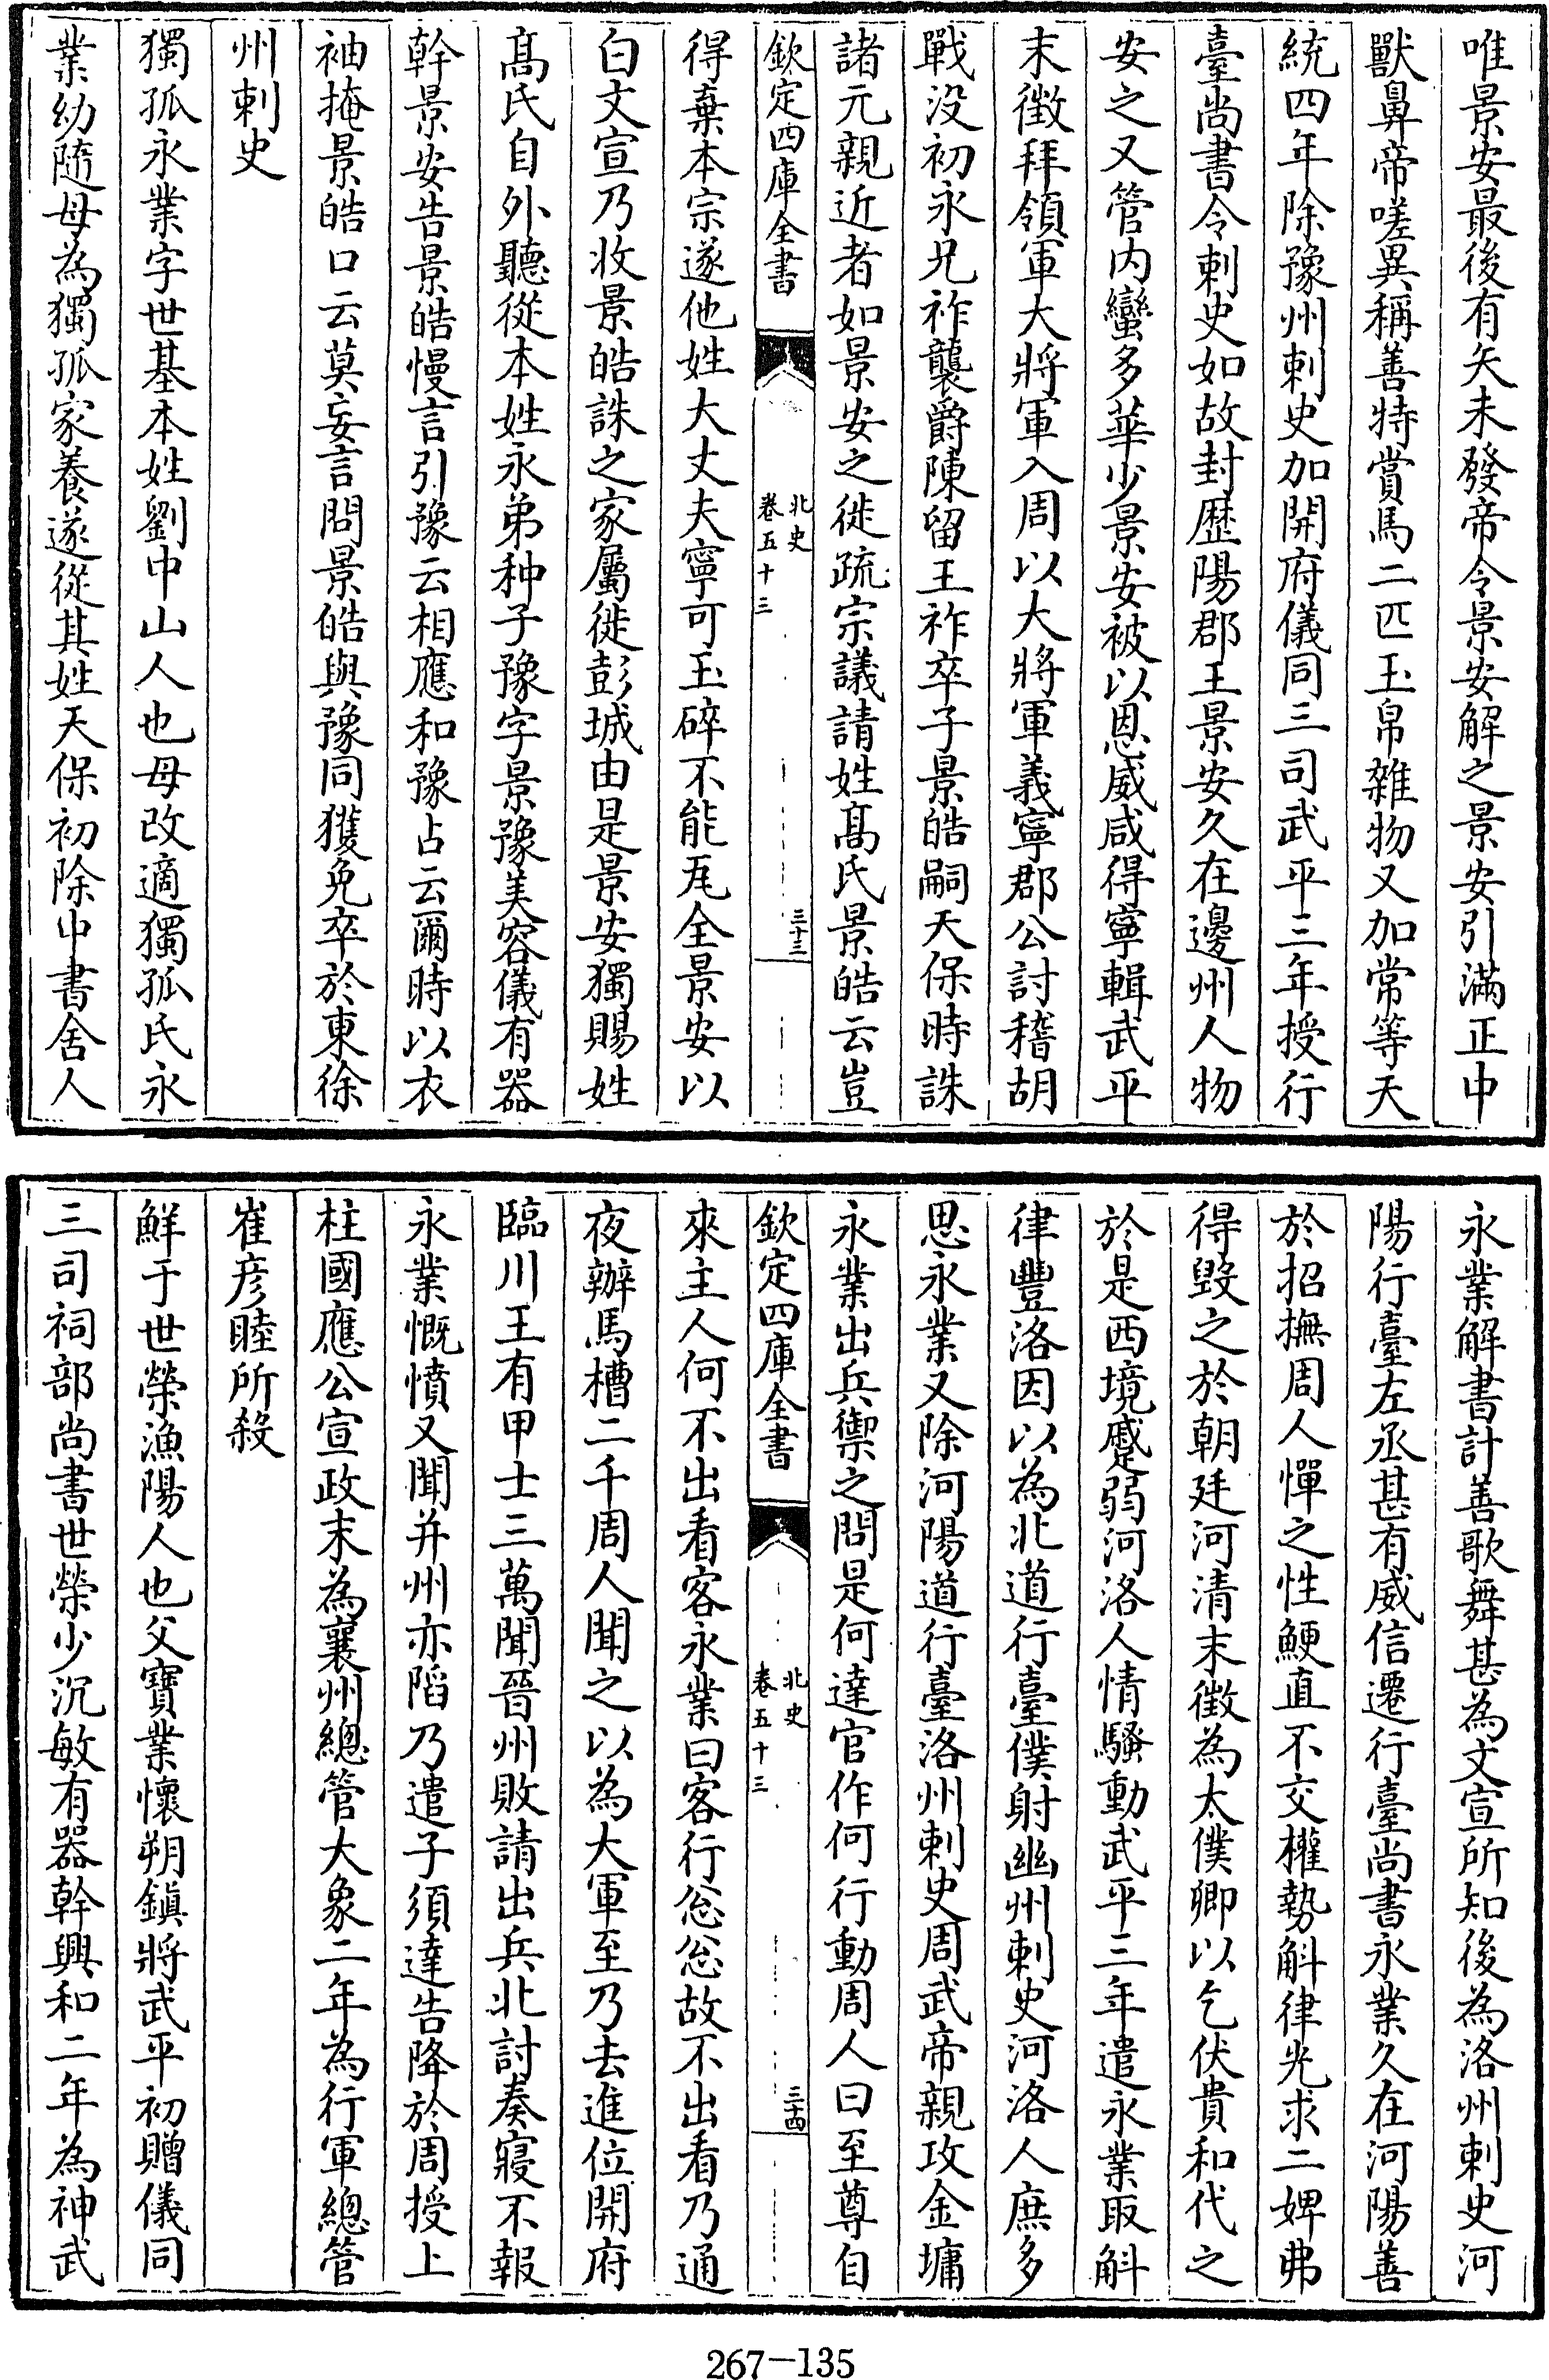 唯景安最後有矢未發帝令景安解之景安引滿正中
獸鼻帝嗟異稱善特賞馬二匹玉帛雜物又加常等天
統四年除豫州刺史加開府儀同三司武平三年授行
臺尚書令刺史如故封歴陽郡王景安久在邊州人物
安之又管内蠻多華少景安被以恩威咸得寧輯武平
末徴拜領軍大將軍入周以大將軍義寧郡公討稽胡
戰没初永兄祚襲爵陳留王祚卒子景皓嗣天保時誅
諸元親近者如景安之徙疏宗議請姓髙氏景皓云豈
欽定四庫全書
北史
卷五十三
三十三
得棄本宗遂他姓大丈夫寧可玉碎不能瓦全景安以
白文宣乃收景皓誅之家屬徙彭城由是景安獨賜姓
髙氏自外聽從本姓永弟种子豫字景豫美容儀有器
幹景安告景皓慢言引豫云相應和豫占云爾時以衣
袖掩景皓口云莫妄言問景皓與豫同獲免卒於東徐
州刺史
獨孤永業字世基本姓劉中山人也母改適獨孤氏永
業幼隨母為獨孤家養遂從其姓天保初除中書舍人
永業解書計善歌舞甚為文宣所知後為洛州刺史河
陽行臺左丞甚有威信遷行臺尚書永業久在河陽善
於招撫周人憚之性鯁直不交權勢斛律光求二婢弗
得毁之於朝廷河清末徴為太僕卿以乞伏貴和代之
於是西境蹙弱河洛人情騷動武平三年遣永業取斛
律豐洛因以為北道行臺僕射幽州刺史河洛人庶多
思永業又除河陽道行臺洛州刺史周武帝親攻金墉
永業出兵禦之問是何達官作何行動周人曰至尊自
欽定四庫全書
北史
卷五十三
三十四
來主人何不出看客永業曰客行怱怱故不出看乃通
夜辦馬槽二千周人聞之以為大軍至乃去進位開府
臨川王有甲士三萬聞晉州敗請出兵北討奏寢不報
永業慨憤又聞并州亦陷乃遣子須達告降於周授上
柱國應公宣政末為襄州總管大象二年為行軍總管
崔彦睦所殺
鮮于世榮漁陽人也父寶業懷朔鎮將武平初贈儀同
三司祠部尚書世榮少沉敏有器幹興和二年為神武
267-135